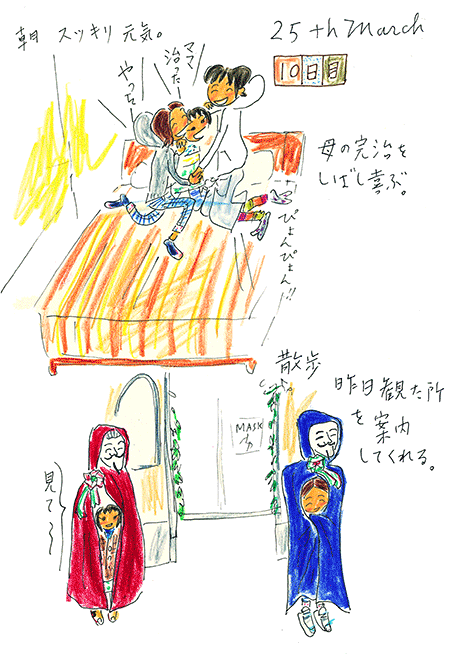 朝 スッキリ 元気。
25th March
10日目
ママ
治ったー
やったー
母の完治を
しばし喜ぶ。
ぴょんぴょん!!
散歩
昨日観た所
を案内
してくれる。
MASK
見て〜